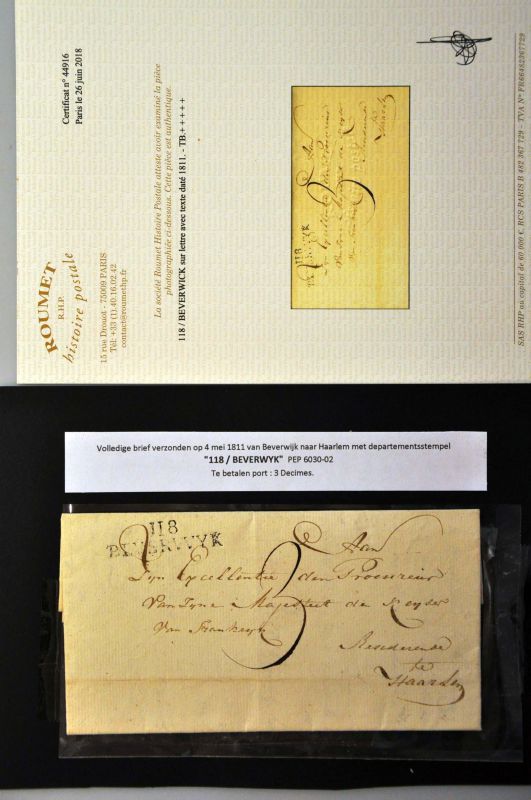 ROUMET
R.H.P.
histoire postale
15 rue Drouot - 75009 PARIS
Tél: +33 (1).40.16.02.42
contact@roumethp.fr
Certificat n° 44916
Paris le 26 juin 2018
La société Roumet Histoire Postale atteste avoir examiné la pièce
photographiée ci-dessous. Cette pièce est authentique.
118 / BEVERWICK sur lettre avec texte daté 1811. - TB.+++++
118
SAS RHP au capital de 60 000 €, RCS PARIS B 482 367 729 - TVA N° FR66482367729
Volledige brief verzonden op 4 mei 1811 van Beverwijk naar Haarlem met departementsstempel
"118 / BEVERWYK" PEP 6030-02
Te betalen port : 3 Decimes.
118
BEVERWYK
3
Aan
Zyn Excellentie den Procureur
Van Zyne Majesteit de Keyser
Van Frankryk
Resederende
te
Haarlem